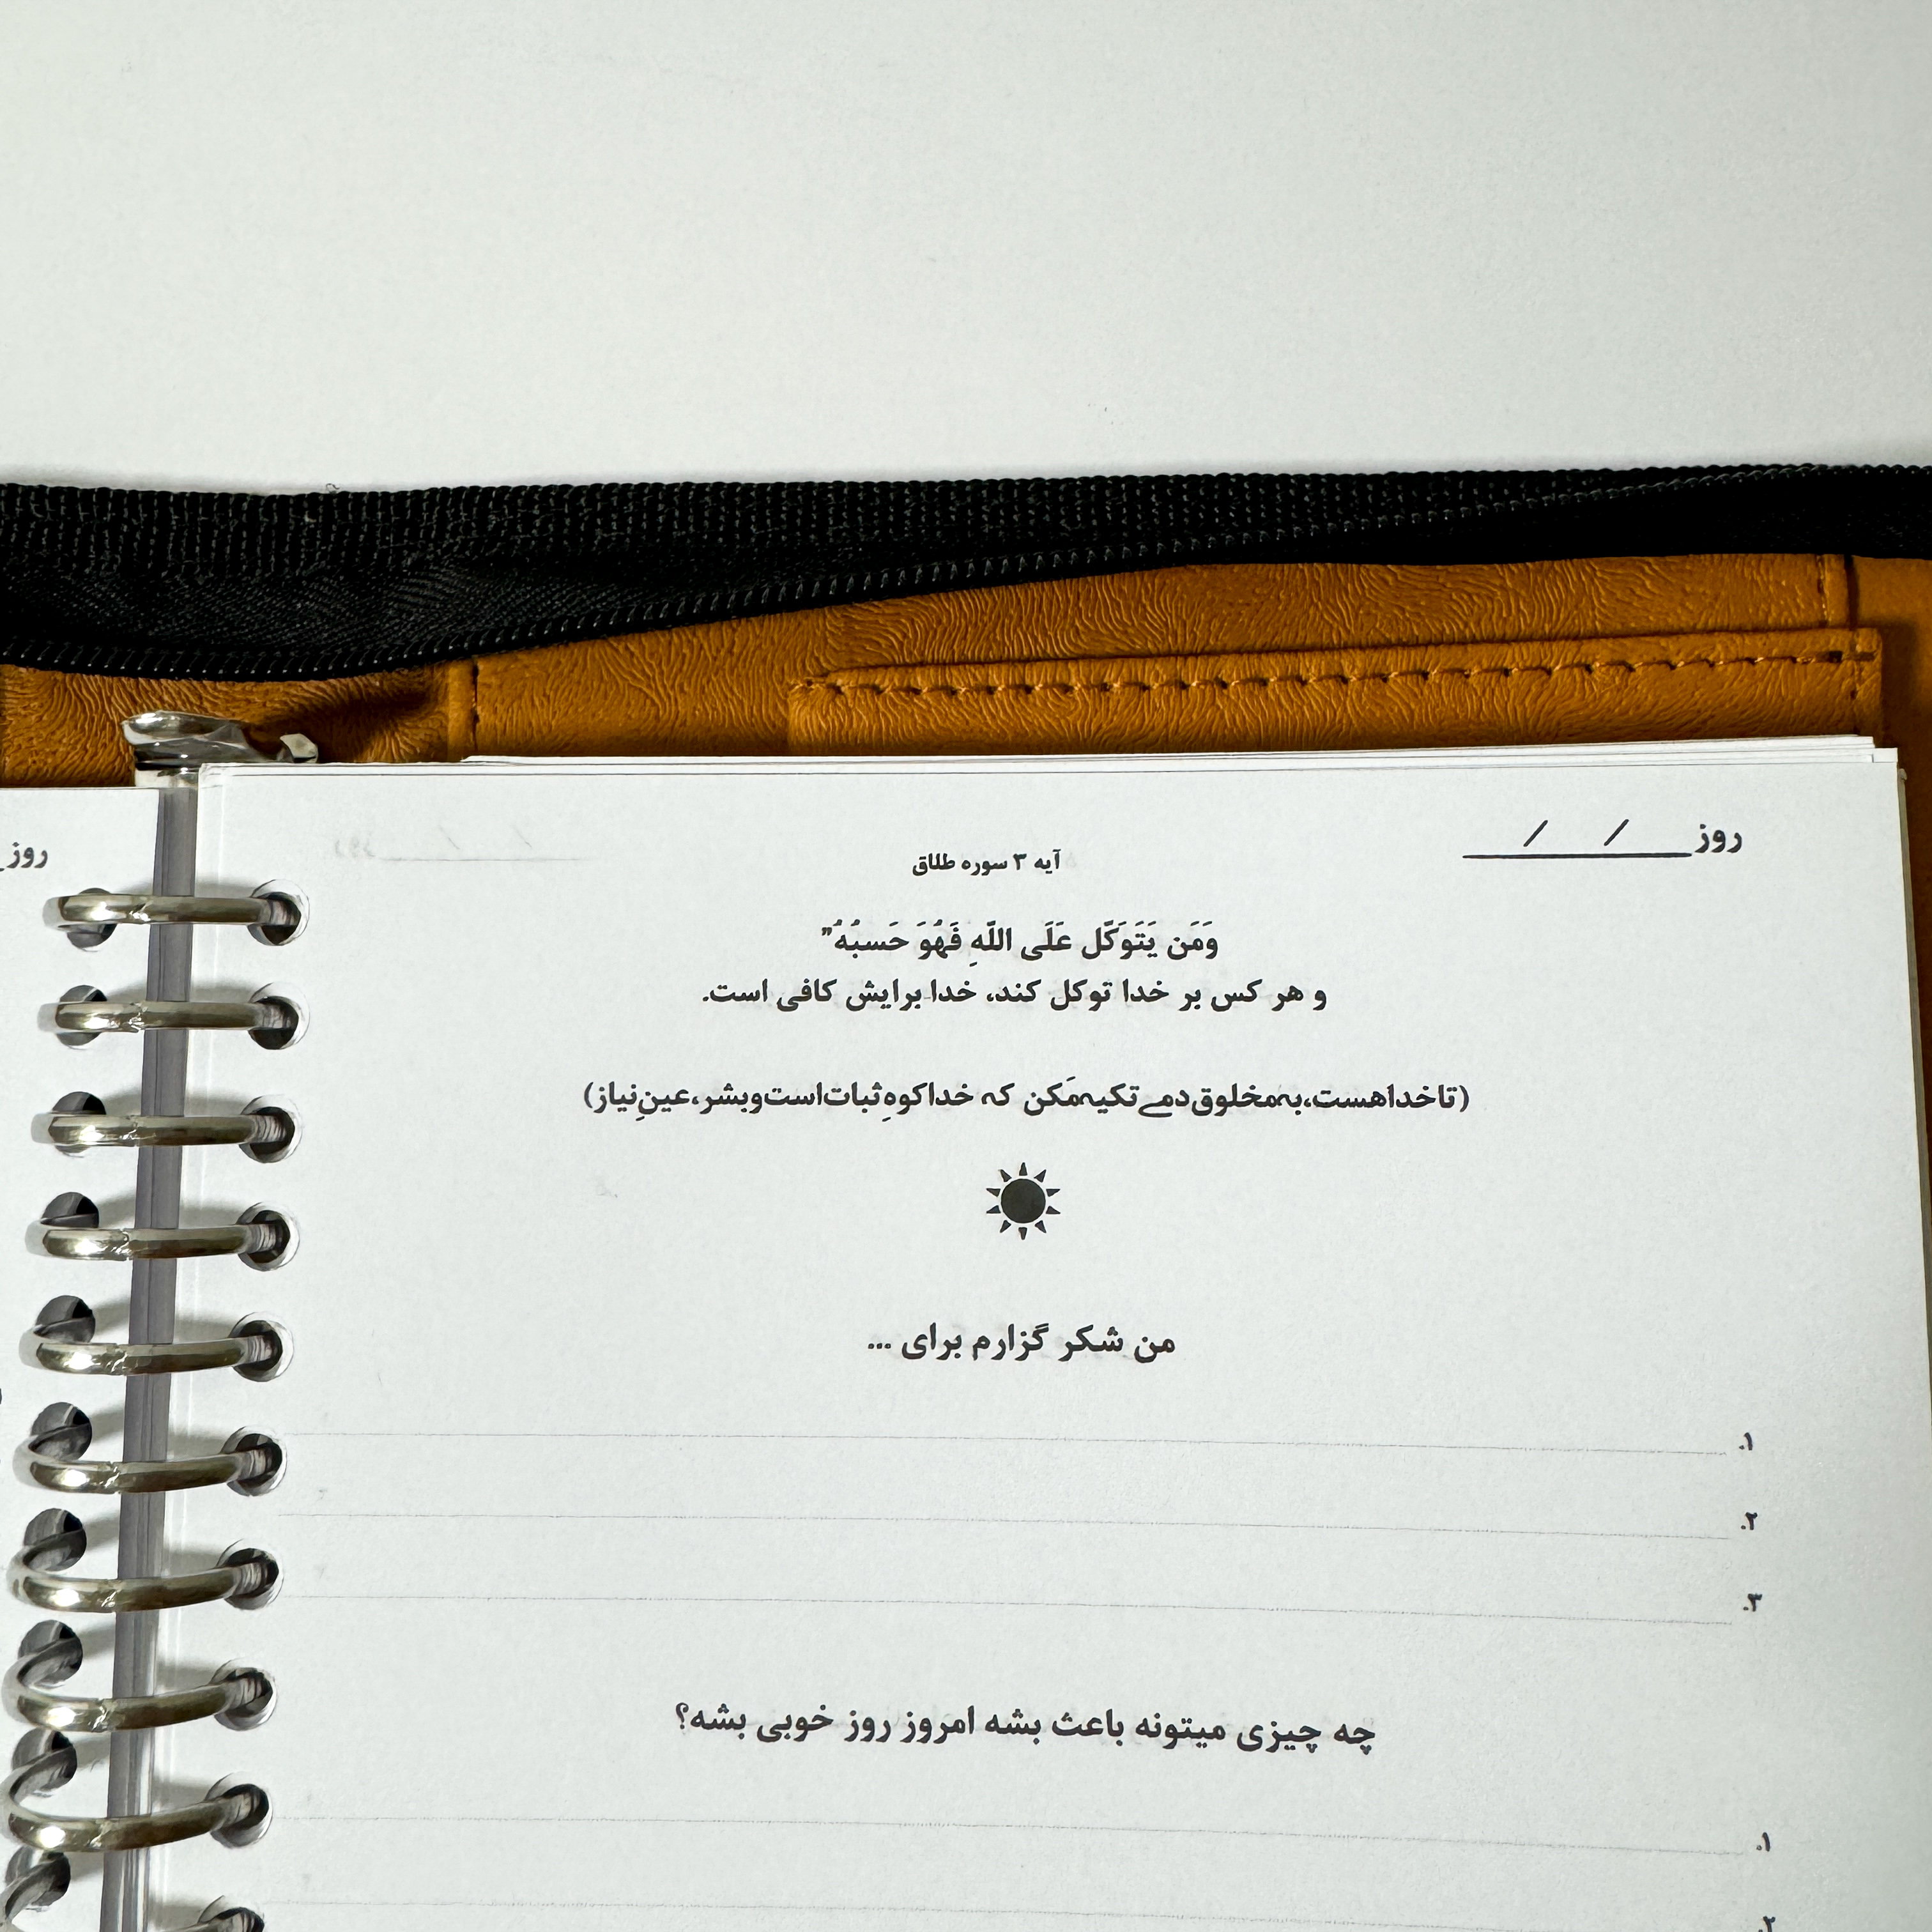 روز / /
آیه ۳ سوره طلاق
وَمَن یَتَوَکَّل عَلَی اللّهِ فَهُوَ حَسبُهُ"
و هر کس بر خدا توکل کند، خدا برایش کافی است.
(تا خدا هست، به مخلوق دمی تکیه مَکن که خدا کوهِ ثبات است و بشر، عینِ نیاز)
من شکر گزارم برای ...
۱.
۲.
۳.
چه چیزی میتونه باعث بشه امروز روز خوبی بشه؟
۱.
۲.
روز